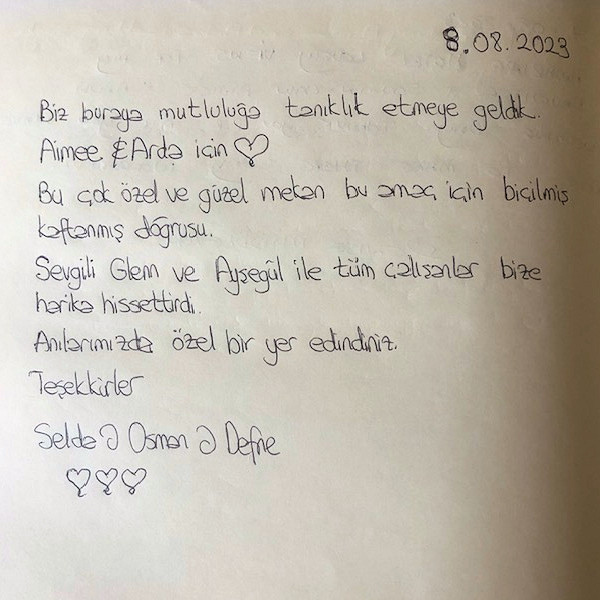 8.08.2023
Biz buraya mutluluğa tanıklık etmeye geldik.
Aimee & Arda için ♡
Bu çok özel ve güzel mekan bu amaç için biçilmiş
kaftanmış doğrusu.
Sevgili Glem ve Ayşegül ile tüm çalışanlar bize
harika hissettirdi.
Anılarımızda özel bir yer edindiniz.
Teşekkürler
Selda Osman Defne
♡♡♡